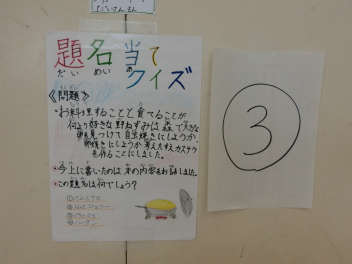 題名当て
だい めい あ
クイズ
《問題》
・お料理することと食べることが
何より好きな野ねずみは森で大きな
卵を見つけて目玉焼きにしようか
卵焼きにしようか考えたすえカステラ
を作ることにしました。
・今上に書いたのは本の内容をお話しました。
・この題名は何でしょう?
3